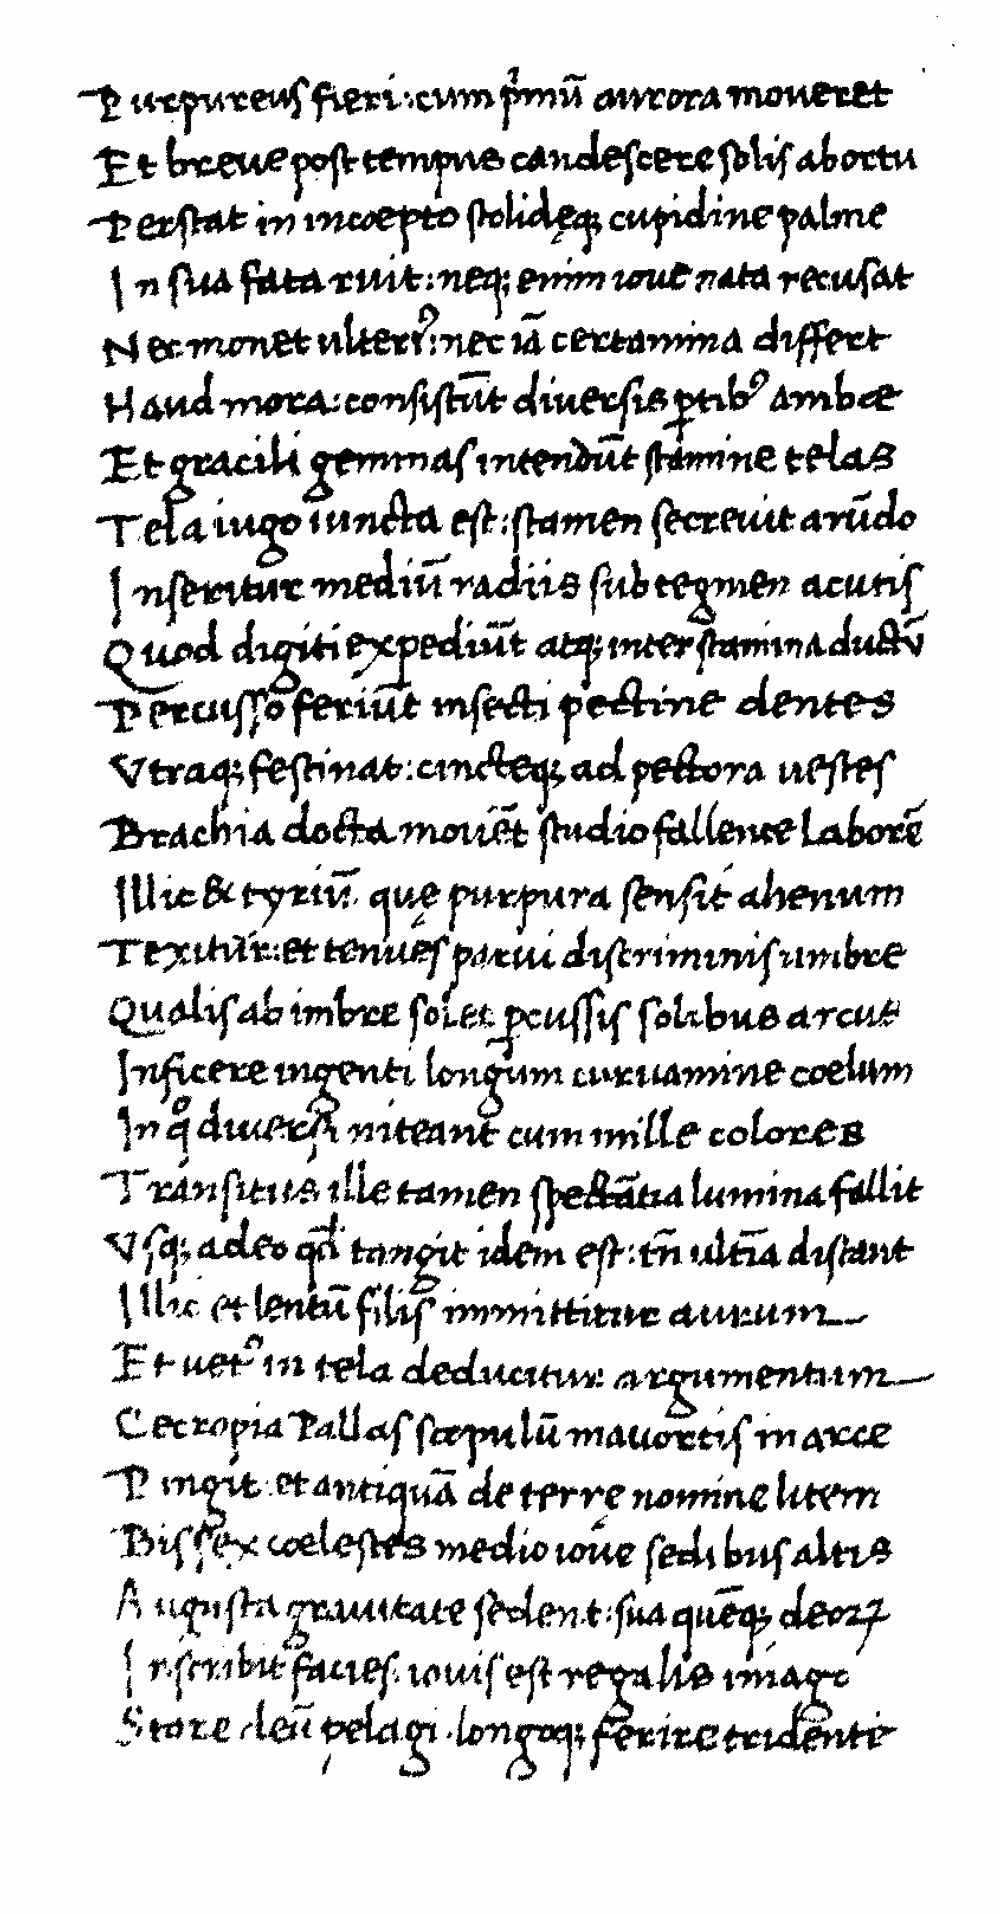 Purpureus fieri: cum p̾mū aurora moueret
Et breue post tempus candescere solis abortu
Perstat in incoepto stolidęq; cupidine palme
In sua fata ruit: neq; enim ioue nata recusat
Nec monet ulteriꝰ: nec iā certamina differt
Haud mora: consistūt diuersis ꝑtibꝰ ambæ
Et gracili geminas intendūt stamine telas
Tela iugo iuncta est: stamen secreuit arūdo
Inseritur mediū radiis subtegmen acutis
Quod digiti expediūt atq; inter stamina ductū
Percusso feriūt insecti pectine dentes
Vtraq; festinat: cincteq; ad pectora uestes
Brachia docta mouēt studio fallente laborē
Illic & tyriū quę purpura sensit ahenum
Texitur: et tenues parui discriminis umbre
Qualis ab imbre solet ꝑcussis solibus arcus
Inficere ingenti longum curuamine coelum
In qͦ diuersi niteant cum mille colores
Transitus ille tamen spectātia lumina fallit
Vsq; adeo qd̄ tangit idem est: tn̄ ultīa distant
Illic et lentū filis immittitur aurum
Et uetꝰ in tela deducitur argumentum
Cecropia Pallas scopulū mauortis in arce
Pingit et antiquā de terrę nomine litem
Bis sex coelestes medio ioue sedibus altis
Augusta grauitate sedent: sua quēq; deoꝝ
Inscribit facies. iouis est regalis imago
Stare deū pelagi. longoq; ferire tridente